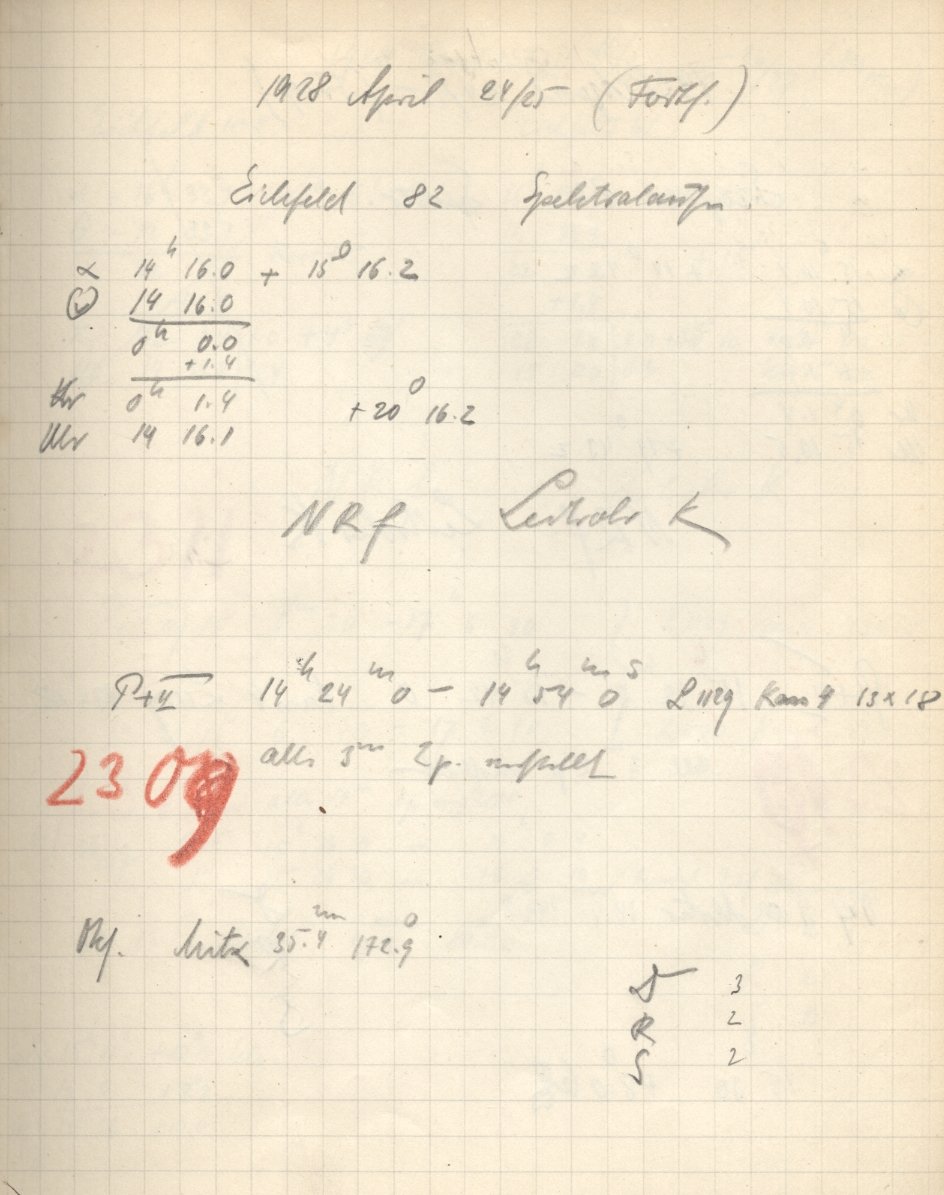 1928 April 24/25 (Forts.)
Eichfeld 82 Spektralaufn.
α 14ʰ 16.0 + 15⁰ 16.2
14 16.0
0ʰ 0.0
+1.4
0ʰ 1.4 +20⁰ 16.2
Uhr 14 16.1
NRf Leitrohr K
P+II 14ʰ 24ᵐ 0 – 14ʰ 54ᵐ 0ˢ Kass 4 13x18
2309 alle 3ᵐ 2p.
Okf. Mitte 35.4ᵐᵐ 172.9⁰
D 3
R 2
S 2